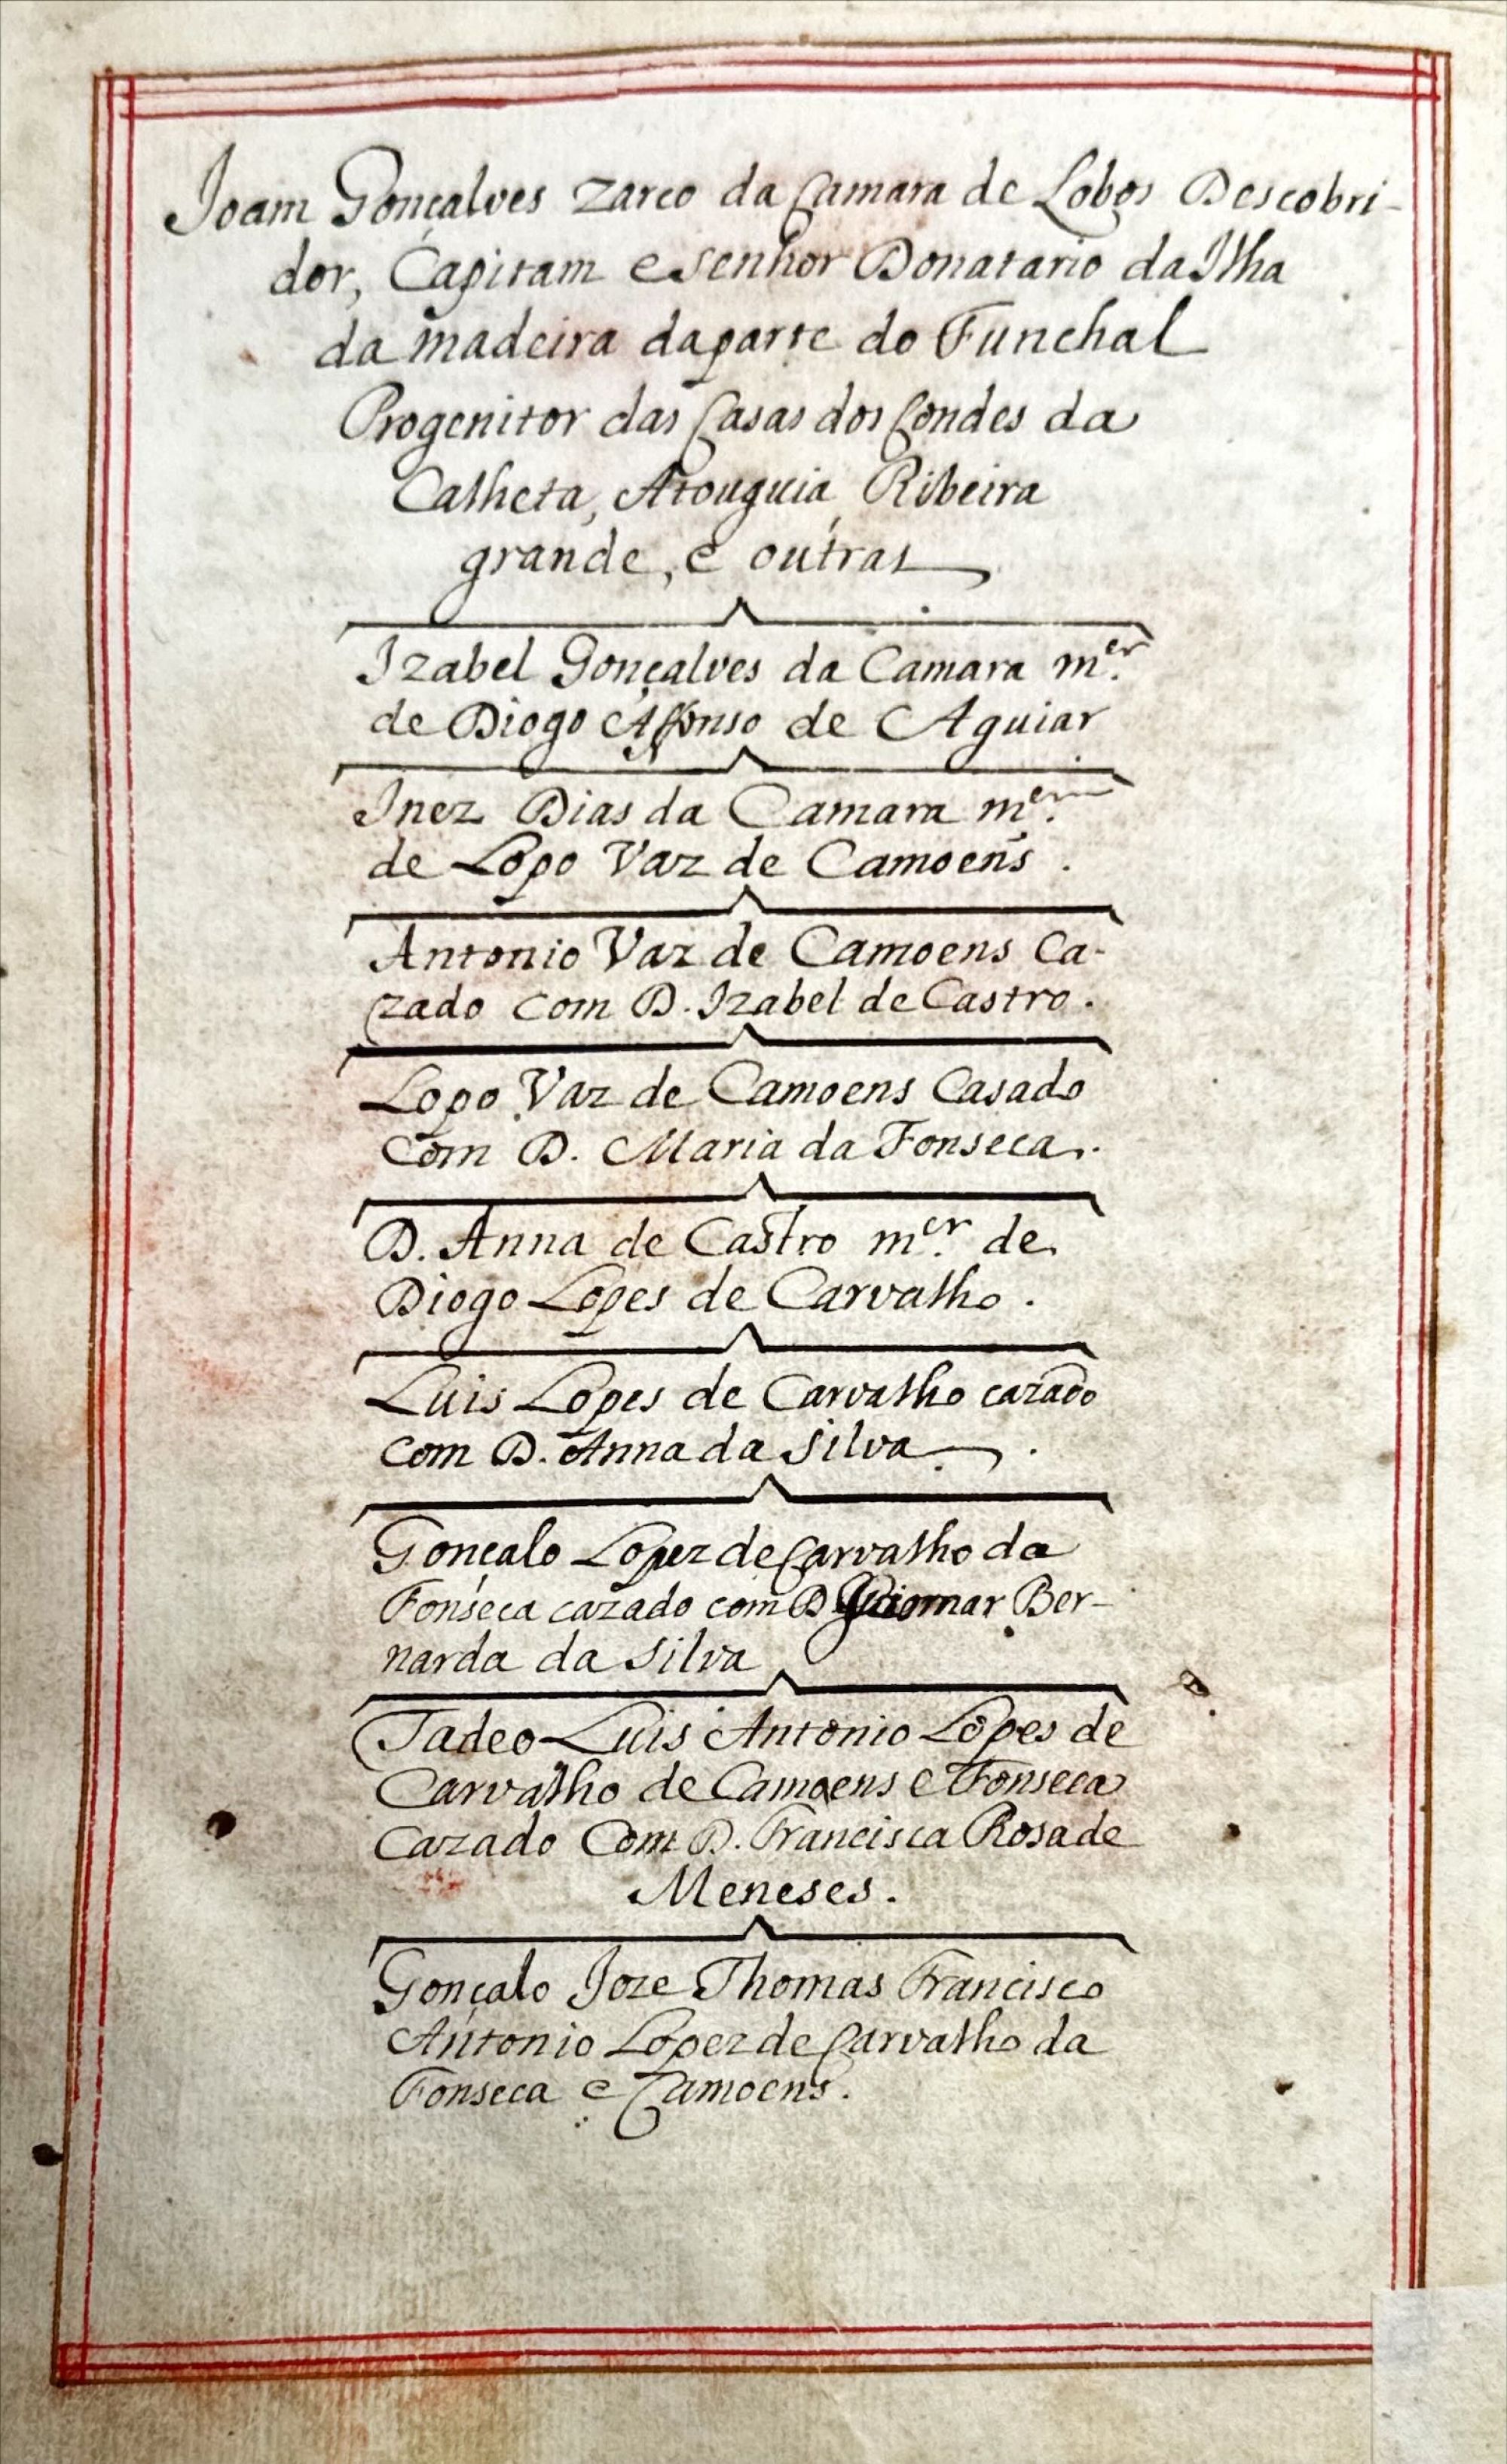 Joam Gonçalves Zarco da Camara de Lobos Descobri-
dor, Capitam e Senhor Donatario da Ilha
da madeira da parte do Funchal
Progenitor das Casas dos Condes da
Calheta, Atouguia, Ribeira
grande, e outras
Izabel Gonçalves da Camara m.er
de Diogo Affonso de Aguiar
Inez Dias da Camara m.er
de Lopo Vaz de Camoens.
Antonio Vaz de Camoens Ca-
zado com D. Izabel de Castro.
Lopo Vaz de Camoens Casado
Com D. Maria da Fonseca.
D. Anna de Castro m.er de
Diogo Lopes de Carvalho.
Luis Lopes de Carvalho cazado
com D. Anna da Silva.
Gonçalo Lopez de Carvalho da
Fonseca cazado com D Guiomar Ber-
narda da Silva
Tadeo Luis Antonio Lopes de
Carvalho de Camoens e Fonseca
Cazado Com D. Francisca Rosa de
Meneses.
Gonçalo Joze Thomas Francisco
Antonio Lopez de Carvalho da
Fonseca e Camoens.